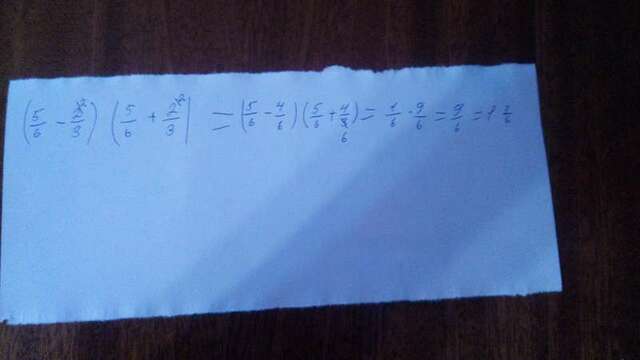 (5/6 - 2/3) (5/6 + 2/3) = (5/6 - 4/6)(5/6 + 4/6) = 1/6 · 9/6 = 9/6 = 1 3/6